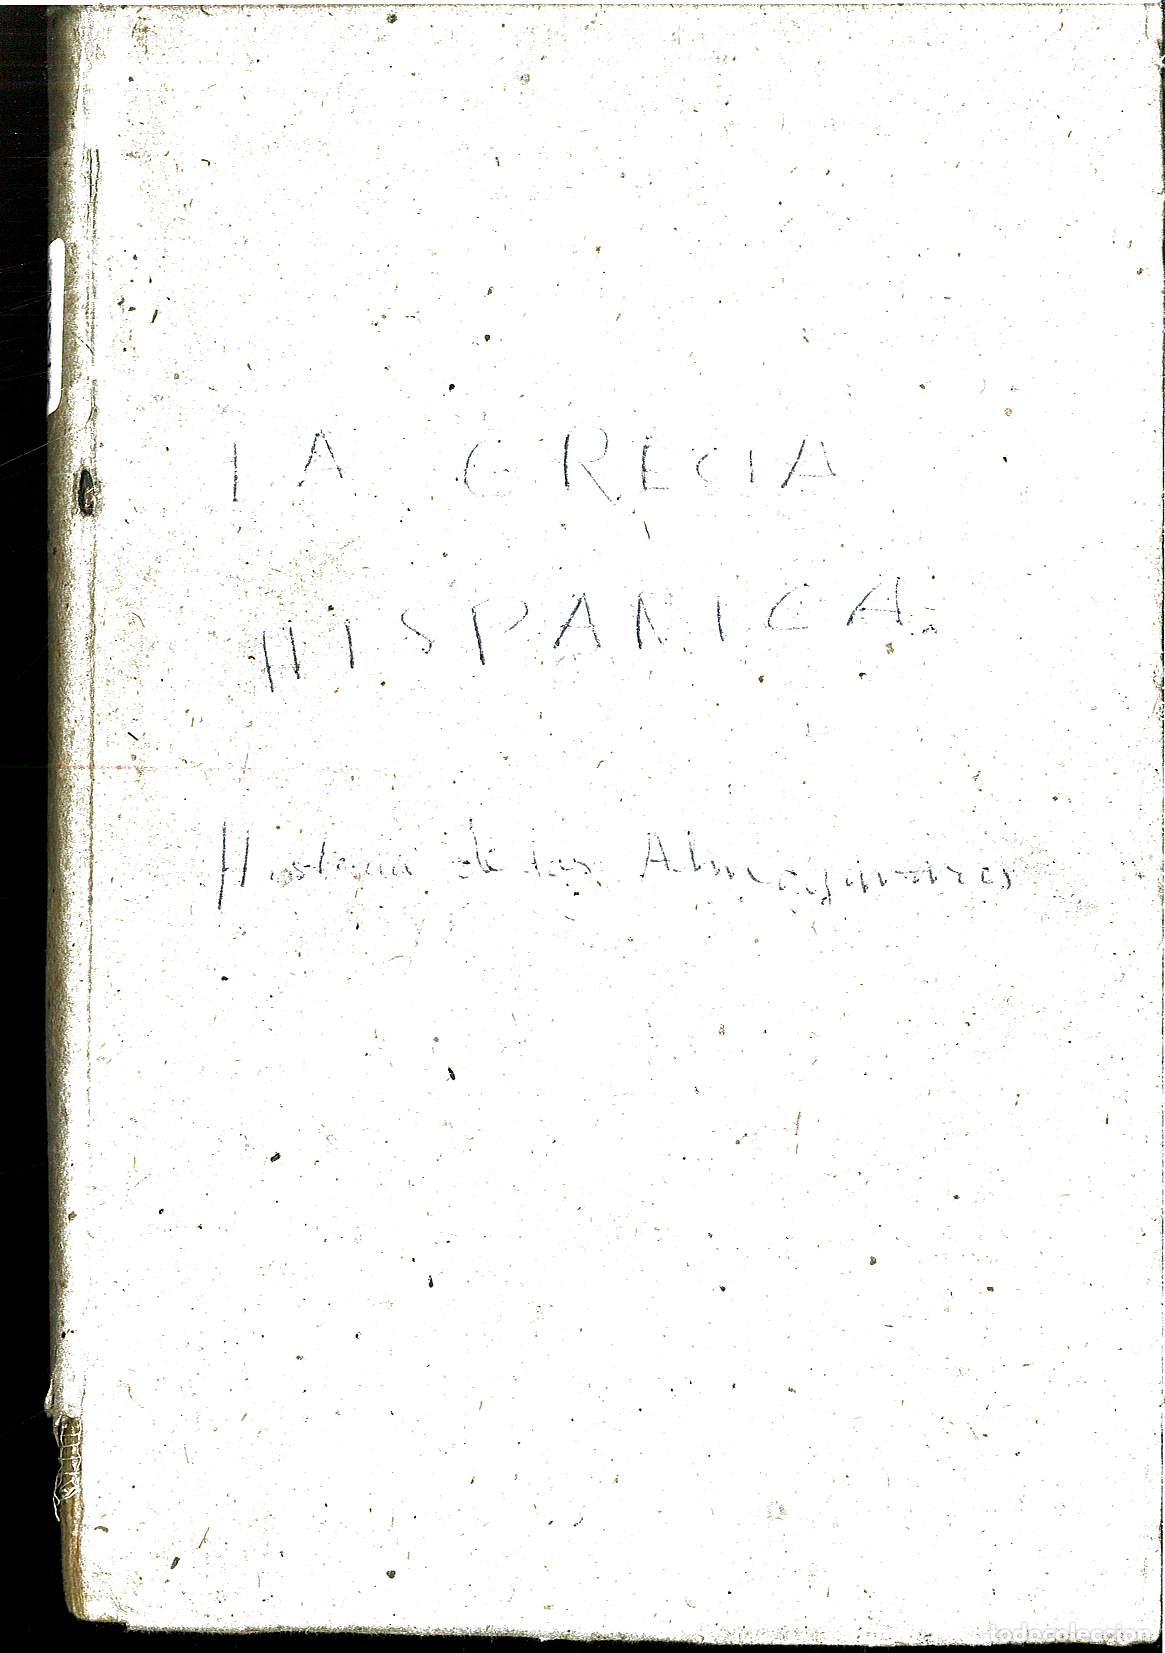 LA GRECIA
HISPANICA.
Historia de los Almogavares
todocoleccion